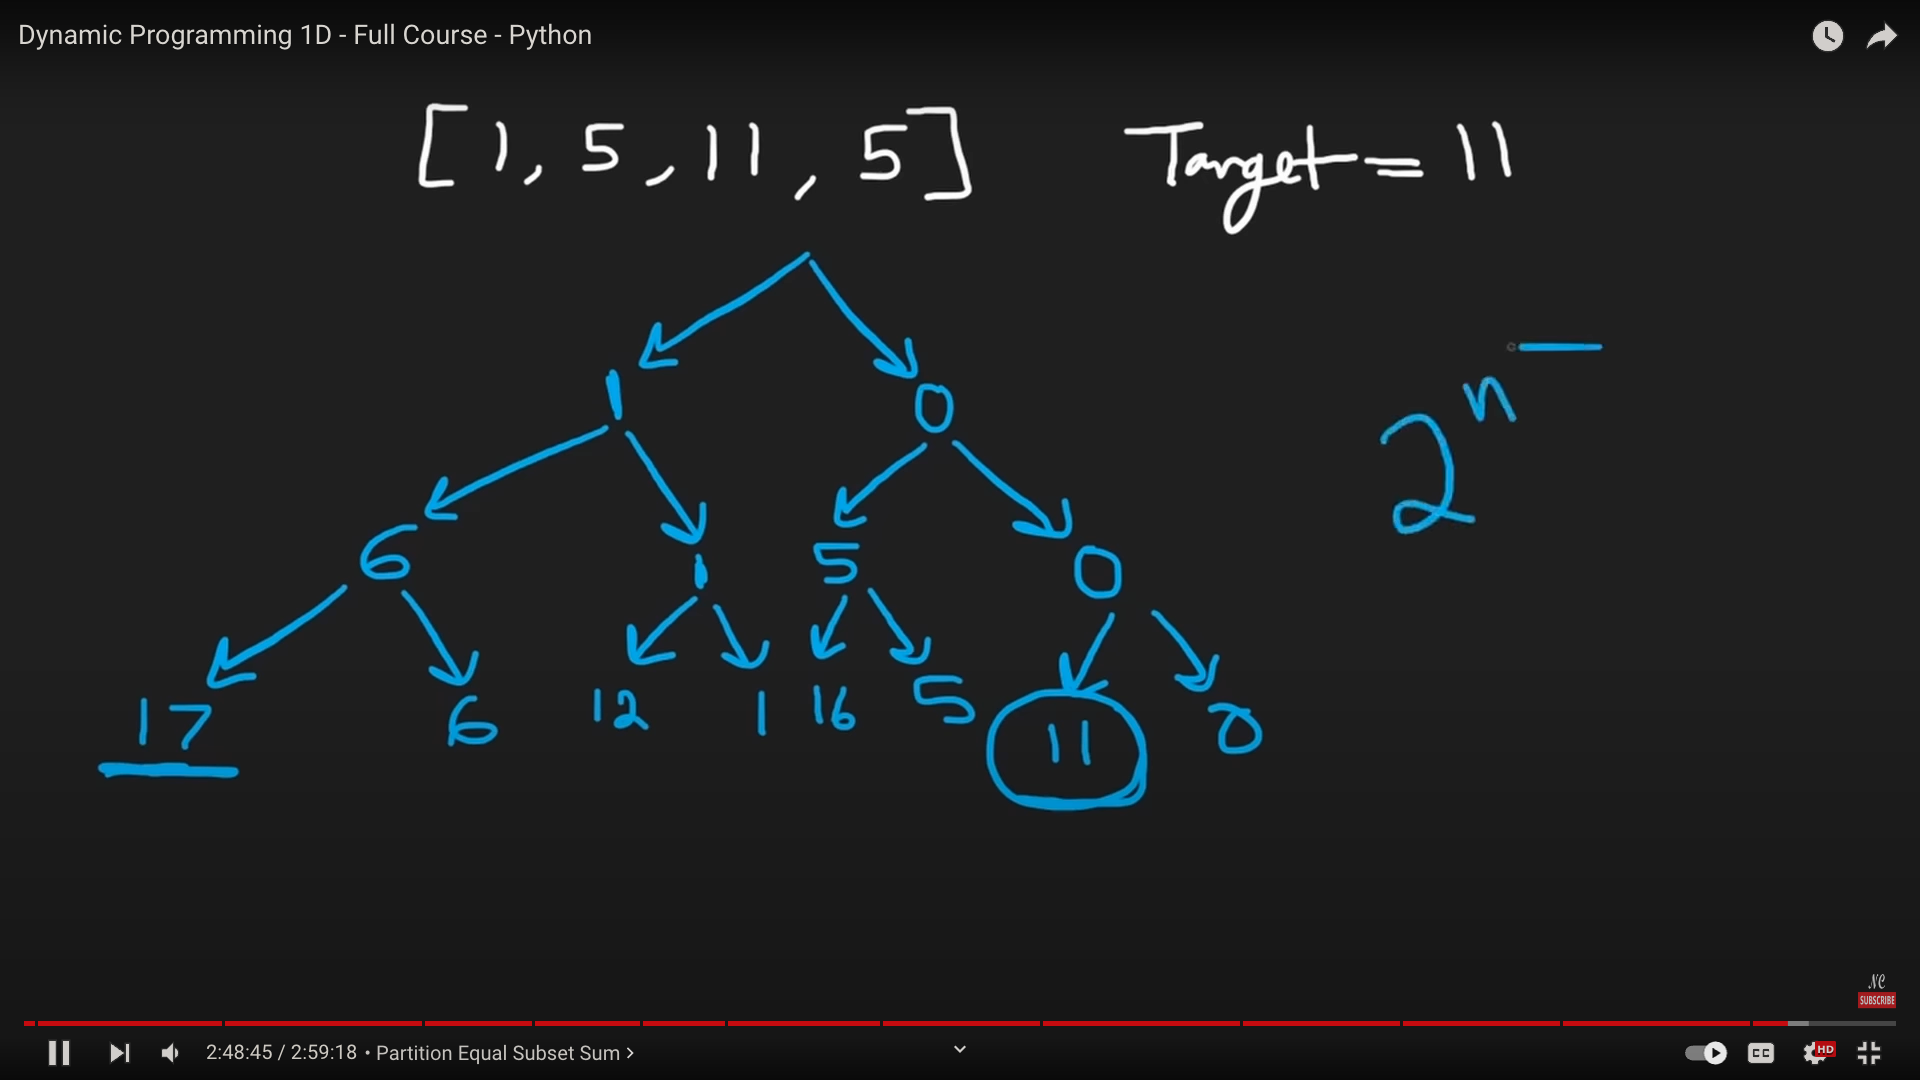 Dynamic Programming 1D - Full Course - Python
[1, 5, 11, 5] Target = 11
2^n
1 0
6 1 5 0
17 6 12 1 16 5 11 0
NC
SUBSCRIBE
2:48:45 / 2:59:18 • Partition Equal Subset Sum >
CC HD